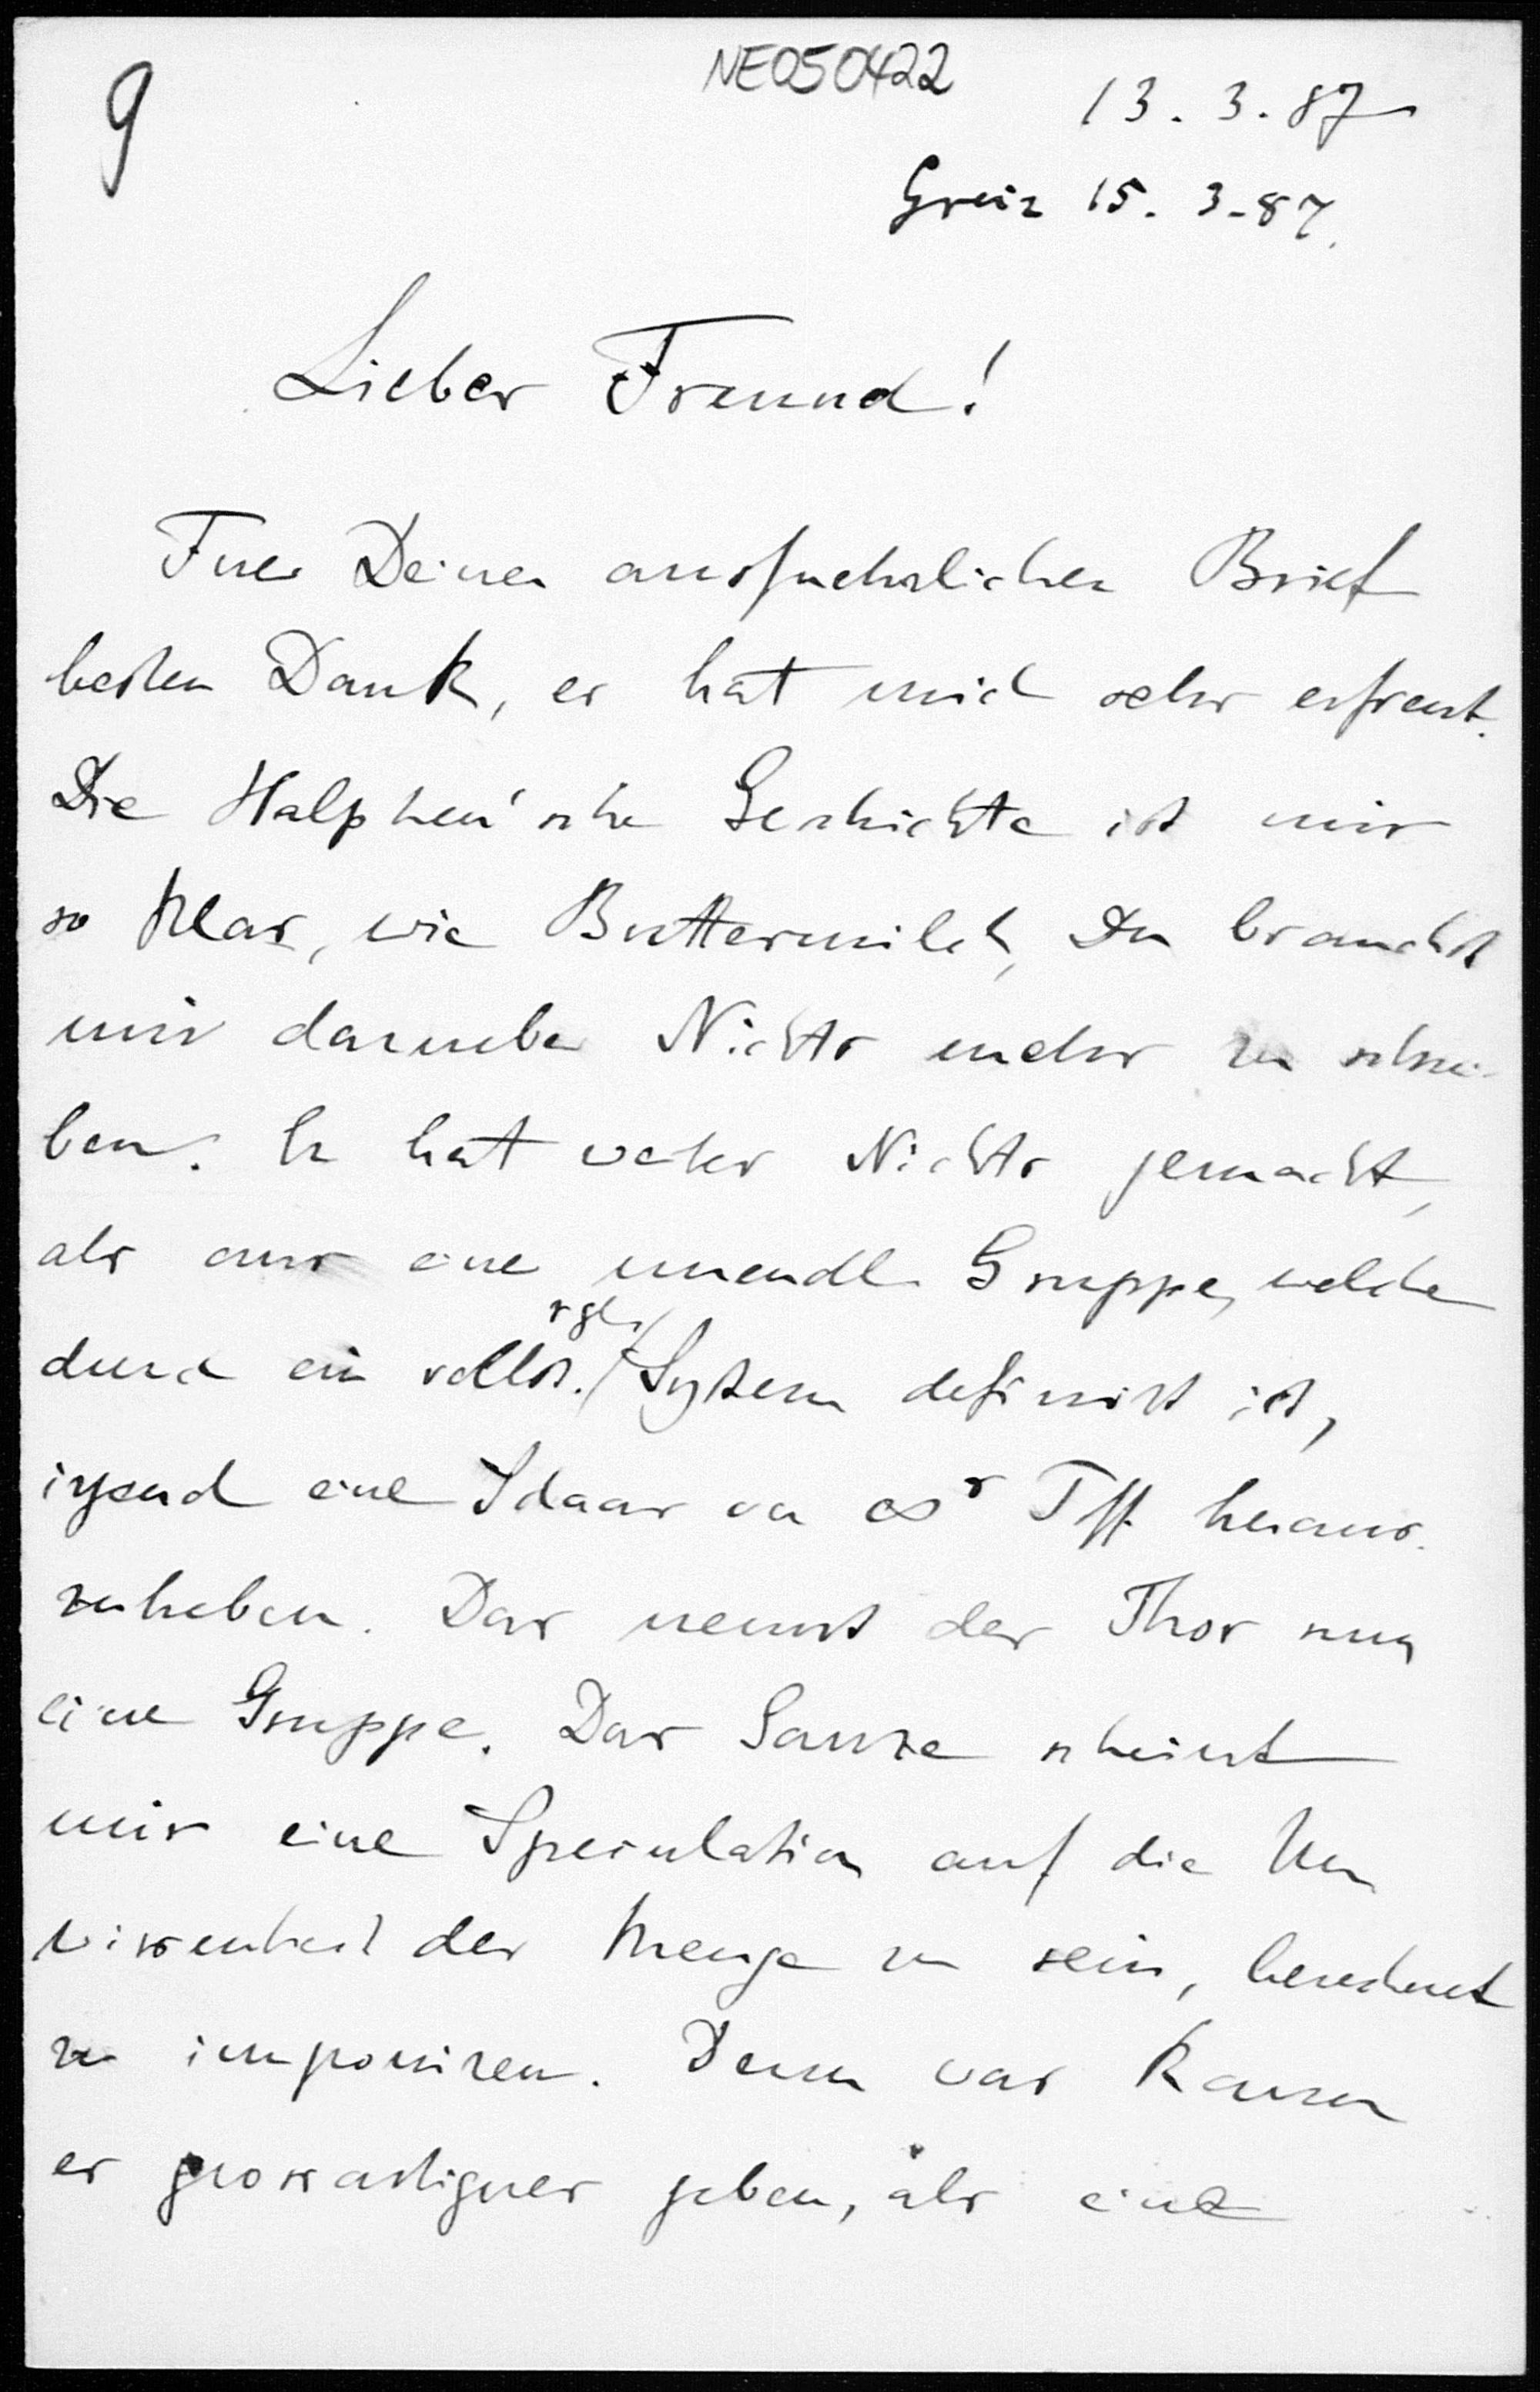 9
NE050422
13. 3. 87
Greiz 15. 3. 87.
Lieber Freund!
Fuer Deinen ausfuehrlichen Brief
besten Dank, er hat mich sehr erfreut.
Die Halphen'sche Geschichte ist mir
so klar, wie Buttermilch, Du brauchst
mir darueber Nichts mehr zu schrei-
ben. Er hat weiter Nichts gemacht,
als aus eine unendl. Gruppe, welche
durch ein vollst. System definirt ist,
irgend eine Schaar von ∞r Tff. heraus-
zuheben. Das nennt der Thor nun
eine Gruppe. Das Ganze scheint
mir eine Speculation auf die Un
wissenheit der Menge zu sein, berechnet
zu imponiren. Denn was kann
es grossartigeres geben, als eine